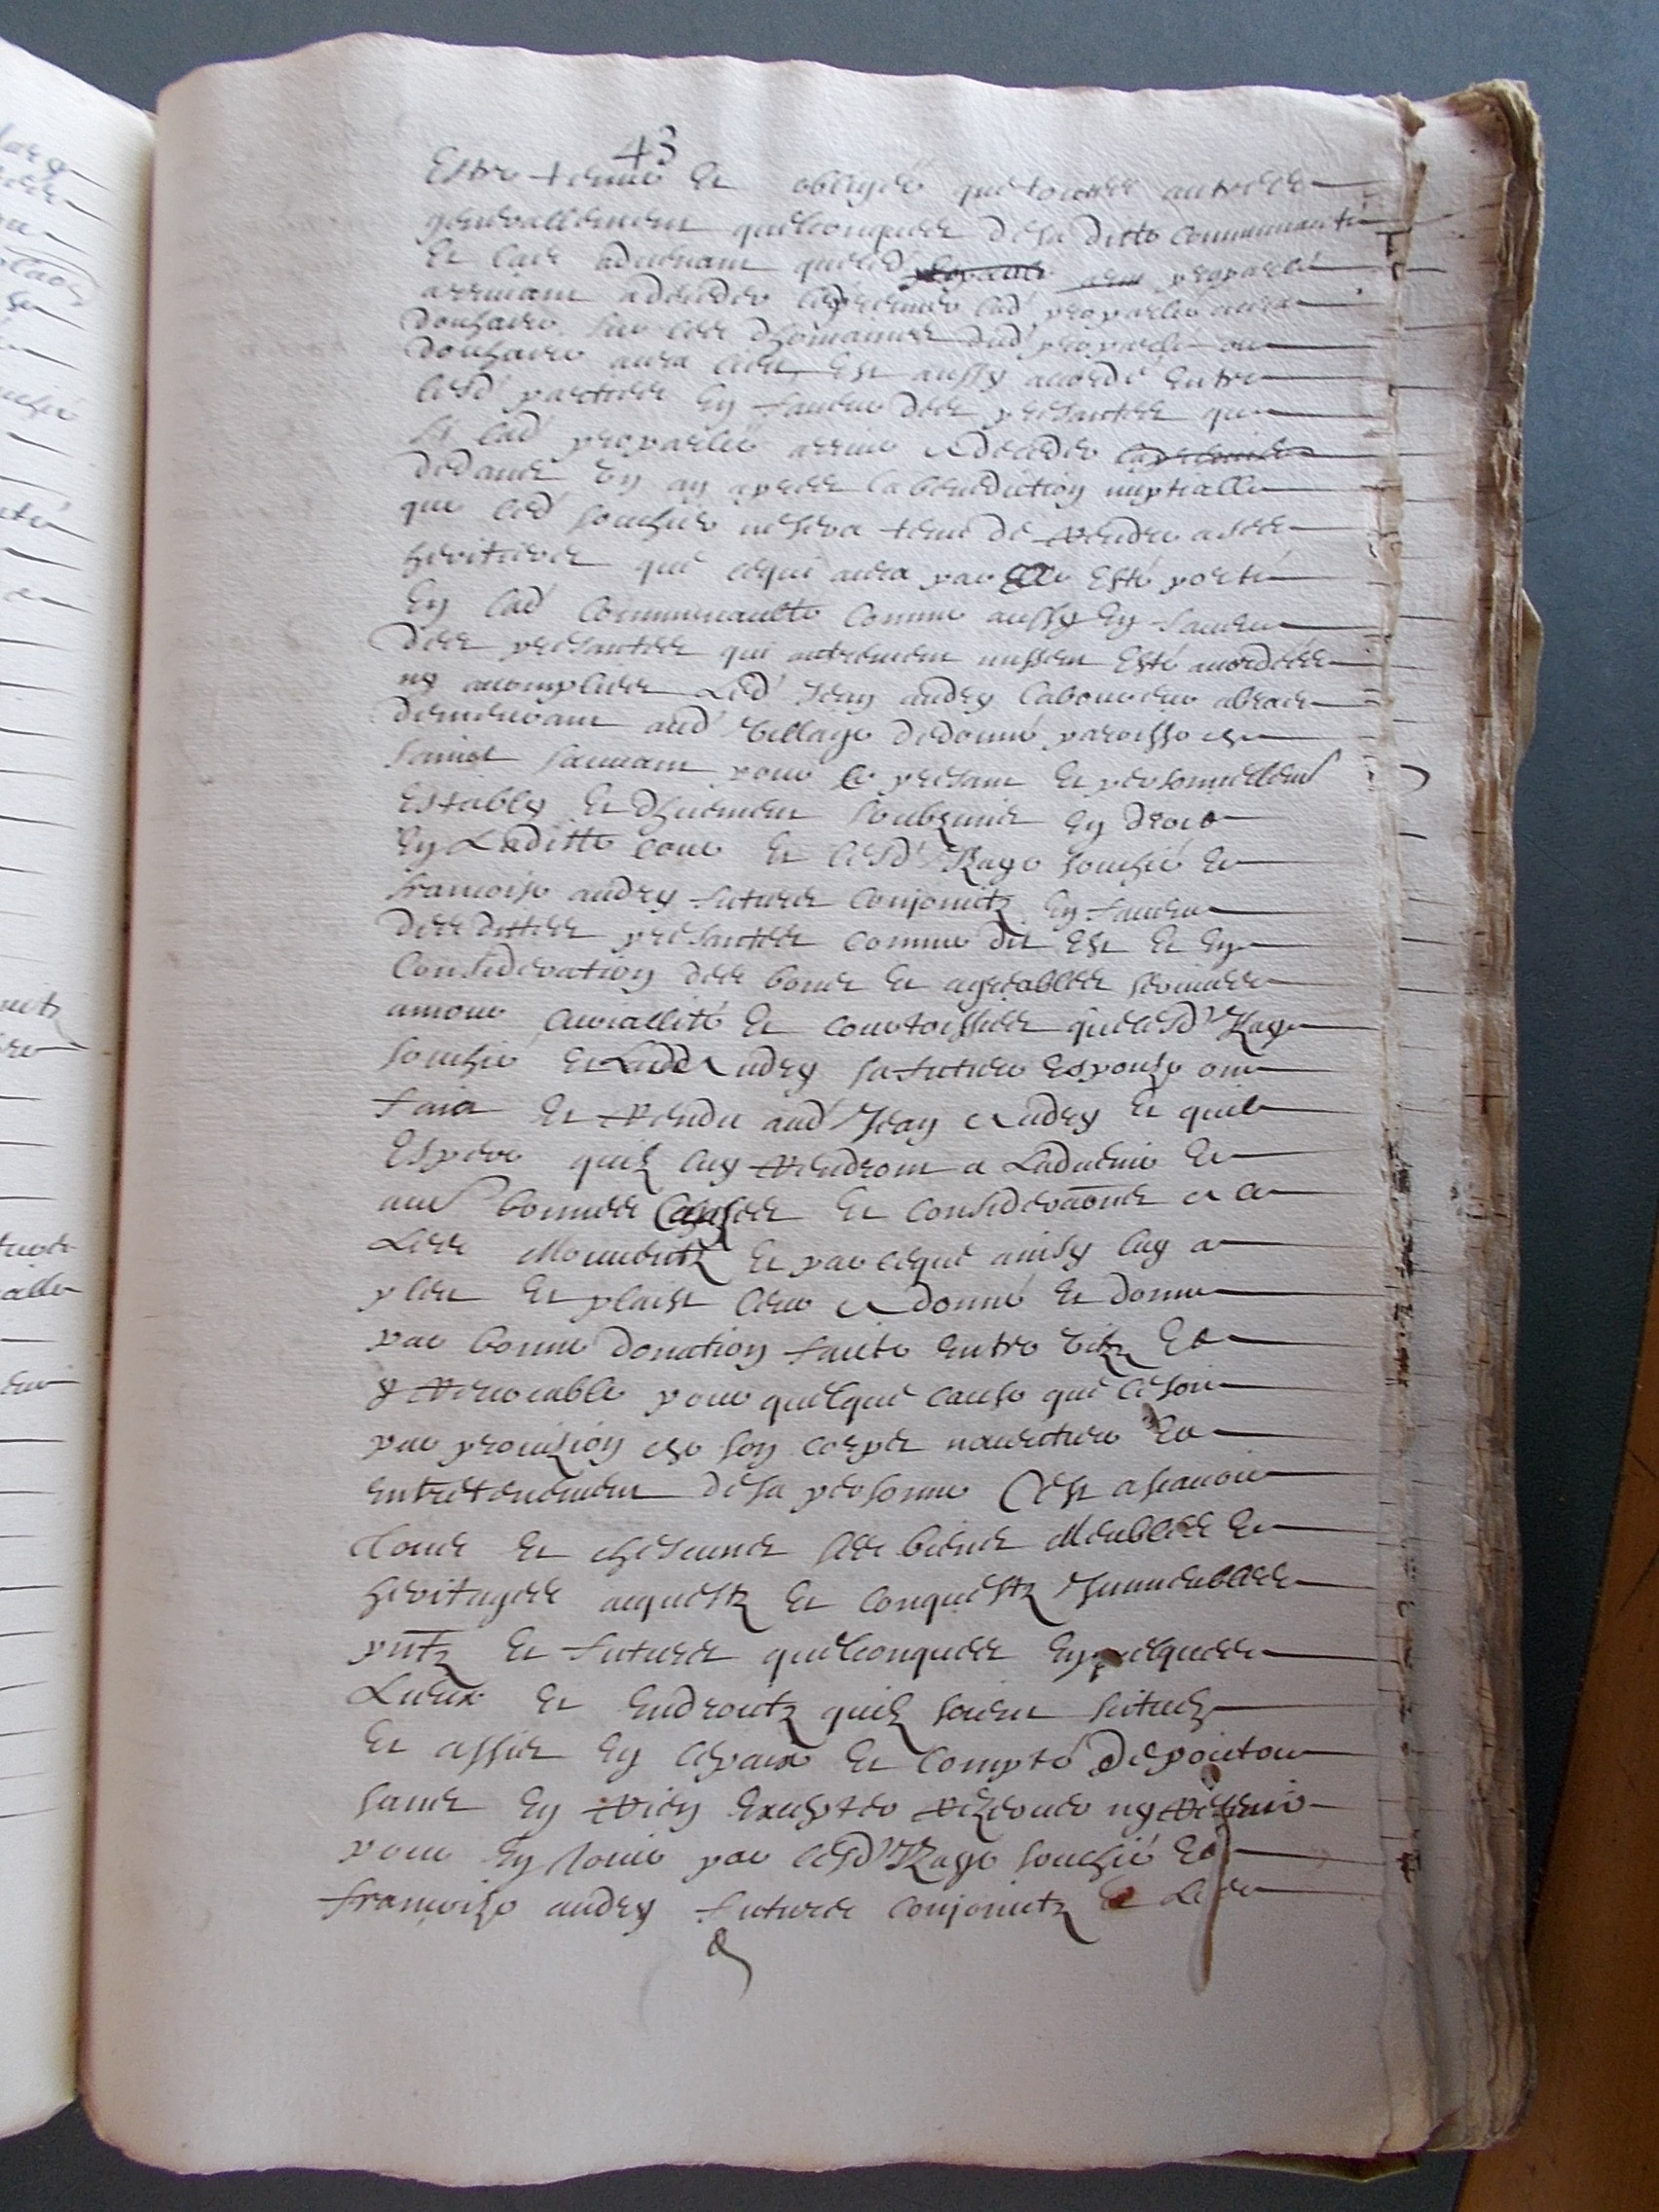 43
Estre tenue et obligée que touttes autres
generallement quelconques de sa ditte communauté
Et cas advenant que led proparlé
arrivant a deceder le premier lad proparlée aura
douhaire sur les dhomaines dud proparlé ou
douhaire aura lieu, Est aussy accordé entre
lesd parties en faveur des presantes que
si lad proparlée arrive a deceder
dedans un an apres la benediction nuptialle
que led souché ne sera tenu de rendre a ses
heritiers que ce qui aura par elle esté porté
En lad communaulté comme aussy en faveur
des presantes qui autrement nussent esté accordées
ny accomplies Led Jean audry laboureur a bras
demeurant aud village de paroisse de
sainct sauvant pour ce presant et personnellement
estably et dhuement soubzmis en droit
En Laditte cour et lesd souché et
francoise audry futurs conjoints en faveur
des dittes presantes comme dit est et en
Consideration des bons et agreables services
amour et courtoissies que lesd
souché et Ladd Audry sa future espouse ont
faict et rendu aud Jean Audry et quil
Espere quilz luy rendront a Ladvenir et
aues bonnes causes et considerations a ce
Les Mouventz et par ce que ainsy luy a
pleu et plaist leur A donné et donne
par bonne donation faicte entre vifz Et
Irrevocable pour quelque cause que ce soit
par provizion de son corps nouriture Et
entretenement de sa personne C'est asscavoir
tous et chescuns ses biens Meubles Et
heritages acquestz et conquestz Immeubles
pntz et futurs quelconques En quelques
Lieux et endroitz quilz soient situez
Et assis en ce païx et compté de poictou
sans en rien excepter rezerver ny retenir
pour en jouir par lesd souché Et
francoise audry futurs conjointz et Les